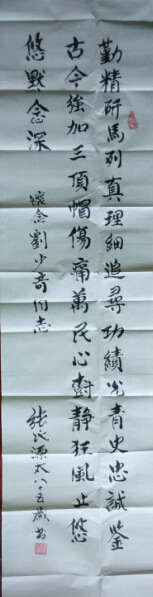 勤精研馬列真理細追尋功績光青史忠誠鑒
古今強加三頂帽傷痛萬民心樹靜狂風止悠
悠默念深
懷念劉少奇同志
張 源太八十五歲書